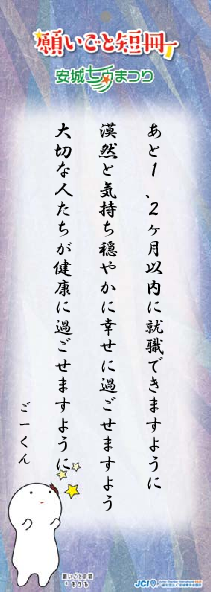 願いごと短冊
安城七夕まつり
あと1、2ヶ月以内に就職できますように
漠然と気持ち穏やかに幸せに過ごせますよう
大切な人たちが健康に過ごせますように
ごーくん
願いごと短冊
JCI